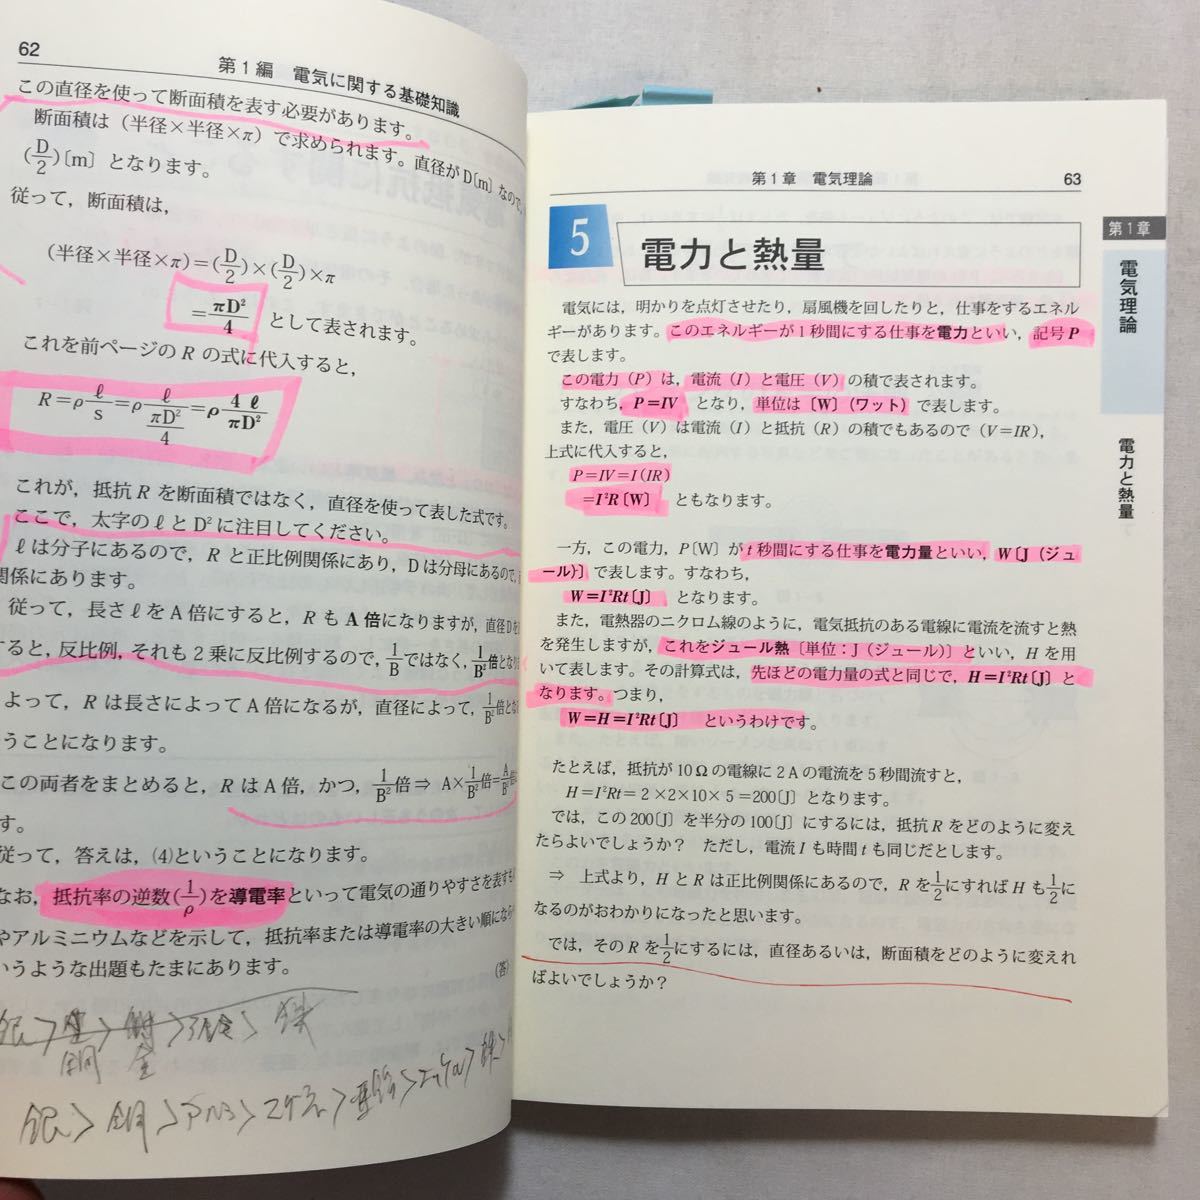 62
第1編 電気に関する基礎知識
この直径を使って断面積を表す必要があります。
断面積は（半径×半径×π）で求められます。直径がD〔m〕なので,
(D/2)〔m〕となります。
従って，断面積は，
(半径×半径×π)=(D/2)×(D/2)×π
=πD²/4 として表されます。
これを前ページのRの式に代入すると，
R=ρℓ/s=ρℓ/(πD²/4)=ρ4ℓ/πD²
これが，抵抗Rを断面積ではなく，直径を使って表した式です。
ここで，太字のℓとD²に注目してください。
ℓは分子にあるので，Rと正比例関係にあり，Dは分母にあるので，
関係にあります。
従って，長さℓをA倍にすると，RもA倍になりますが，直径Dを
すると，反比例，それも2乗に反比例するので，1/Bではなく，1/B²倍とな
よって，Rは長さによってA倍になるが，直径によって，1/B²倍と
うことになります。
この両者をまとめると，RはA倍，かつ，1/B²倍⇒ A×1/B²倍=A/B²倍
す。
従って，答えは，(4)ということになります。
なお，抵抗率の逆数(1/ρ)を導電率といって電気の通りやすさを表す
やアルミニウムなどを示して，抵抗率または導電率の大きい順に
いうような出題もたまにあります。
(答)
銀>銅>
第1章 電気理論
63
5
電力と熱量
電気には，明かりを点灯させたり，扇風機を回したりと，仕事をするエネル
ギーがあります。このエネルギーが1秒間にする仕事を電力といい，記号P
で表します。
この電力（P）は，電流（I）と電圧（V）の積で表されます。
すなわち，P=IV となり，単位は〔W〕(ワット）で表します。
また，電圧（V）は電流（I）と抵抗（R）の積でもあるので（V=IR），
上式に代入すると，
P=IV=I(IR)
=I²R〔W〕 ともなります。
一方，この電力，P〔W〕がt秒間にする仕事を電力量といい，W〔J（ジュ
ール)〕で表します。すなわち，
W=I²Rt〔J〕 となります。
また，電熱器のニクロム線のように，電気抵抗のある電線に電流を流すと熱
を発生しますが，これをジュール熱〔単位：J（ジュール)〕といい，Hを用
いて表します。その計算式は，先ほどの電力量の式と同じで，H=I²Rt〔J〕と
なります。つまり，
W=H=I²Rt〔J〕 というわけです。
たとえば，抵抗が10Ωの電線に2Aの電流を5秒間流すと，
H=I²Rt=2×2×10×5=200〔J〕となります。
では，この200〔J〕を半分の100〔J〕にするには，抵抗Rをどのように変え
たらよいでしょうか？ ただし，電流Iも時間tも同じだとします。
⇒ 上式より，HとRは正比例関係にあるので，Rを1/2にすればHも1/2に
なるのがおわかりになったと思います。
では，そのRを1/2にするには，直径あるいは，断面積をどのように変えれ
ばよいでしょうか？
第1章
電気理論
電力と熱量